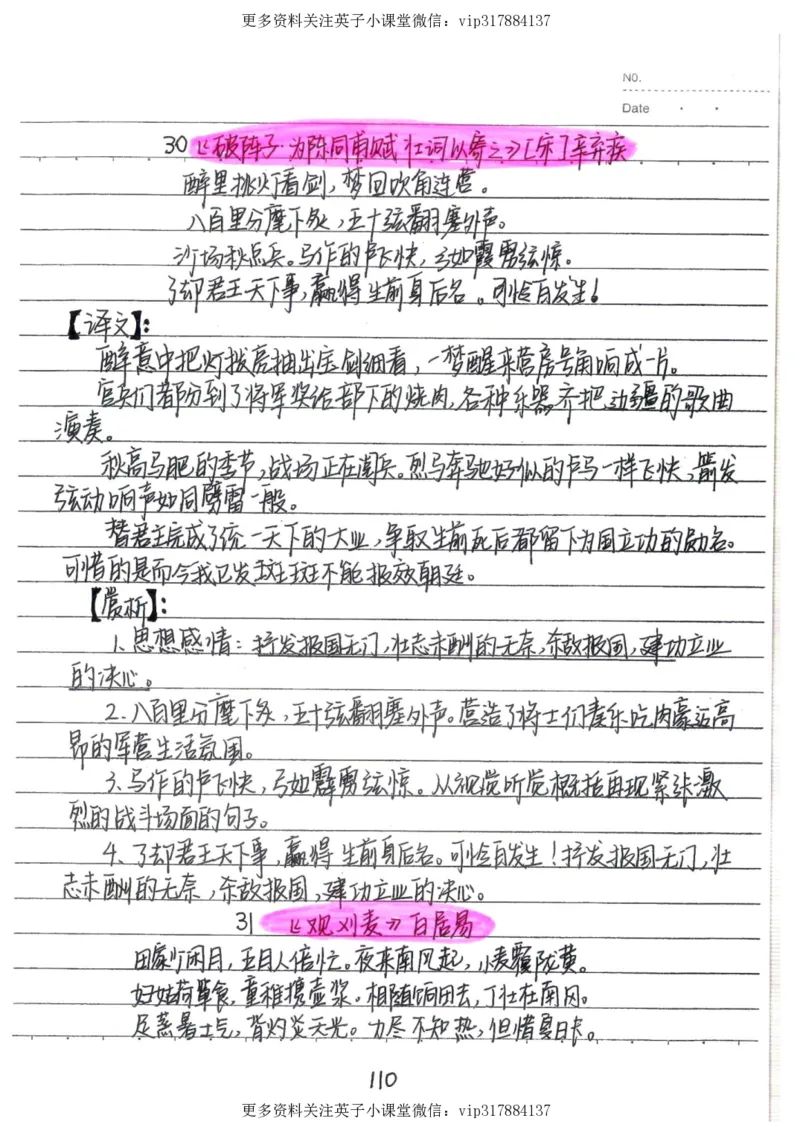 更多资料关注英子小课堂微信：vip317884137
N0.
Date
30《破阵子·为陈同甫赋壮词以寄之》[宋]辛弃疾
醉里挑灯看剑，梦回吹角连营。
八百里分麾下炙，五十弦翻塞外声。
沙场秋点兵。马作的卢飞快，弓如霹雳弦惊。
了却君王天下事，赢得生前身后名。可怜白发生！
【译文】：
醉意中把灯拨亮抽出宝剑细看，一梦醒来营房号角响成一片。
官兵们都分到了将军奖给部下的烧肉，各种乐器齐把边疆的歌曲
演奏。
秋高马肥的季节，战场正在阅兵。烈马奔驰好似的卢马一样飞快，箭发
弦动响声如同霹雷一般。
替君主完成了统一天下的大业，争取生前死后都留下为国立功的勋名。
可惜的是而今我已发斑斑不能报效朝廷。
【赏析】：
1. 思想感情：抒发报国无门，壮志未酬的无奈，杀敌报国，建功立业
的决心。
2. 八百里分麾下炙，五十弦翻塞外声。营造了将士们奏乐吃肉豪迈高
昂的军营生活氛围。
3. 马作的卢飞快，弓如霹雳弦惊。从视觉听觉概括再现紧张激
烈的战斗场面的句子。
4. 了却君王天下事，赢得生前身后名。可怜白发生！抒发报国无门，壮
志未酬的无奈，杀敌报国，建功立业的决心。
31《观刈麦》白居易
田家少闲月，五月人倍忙。夜来南风起，小麦覆陇黄。
妇姑荷箪食，童稚携壶浆。相随饷田去，丁壮在南冈。
足蒸暑土气，背灼炎天光。力尽不知热，但惜夏日长。
110
更多资料关注英子小课堂微信：vip317884137